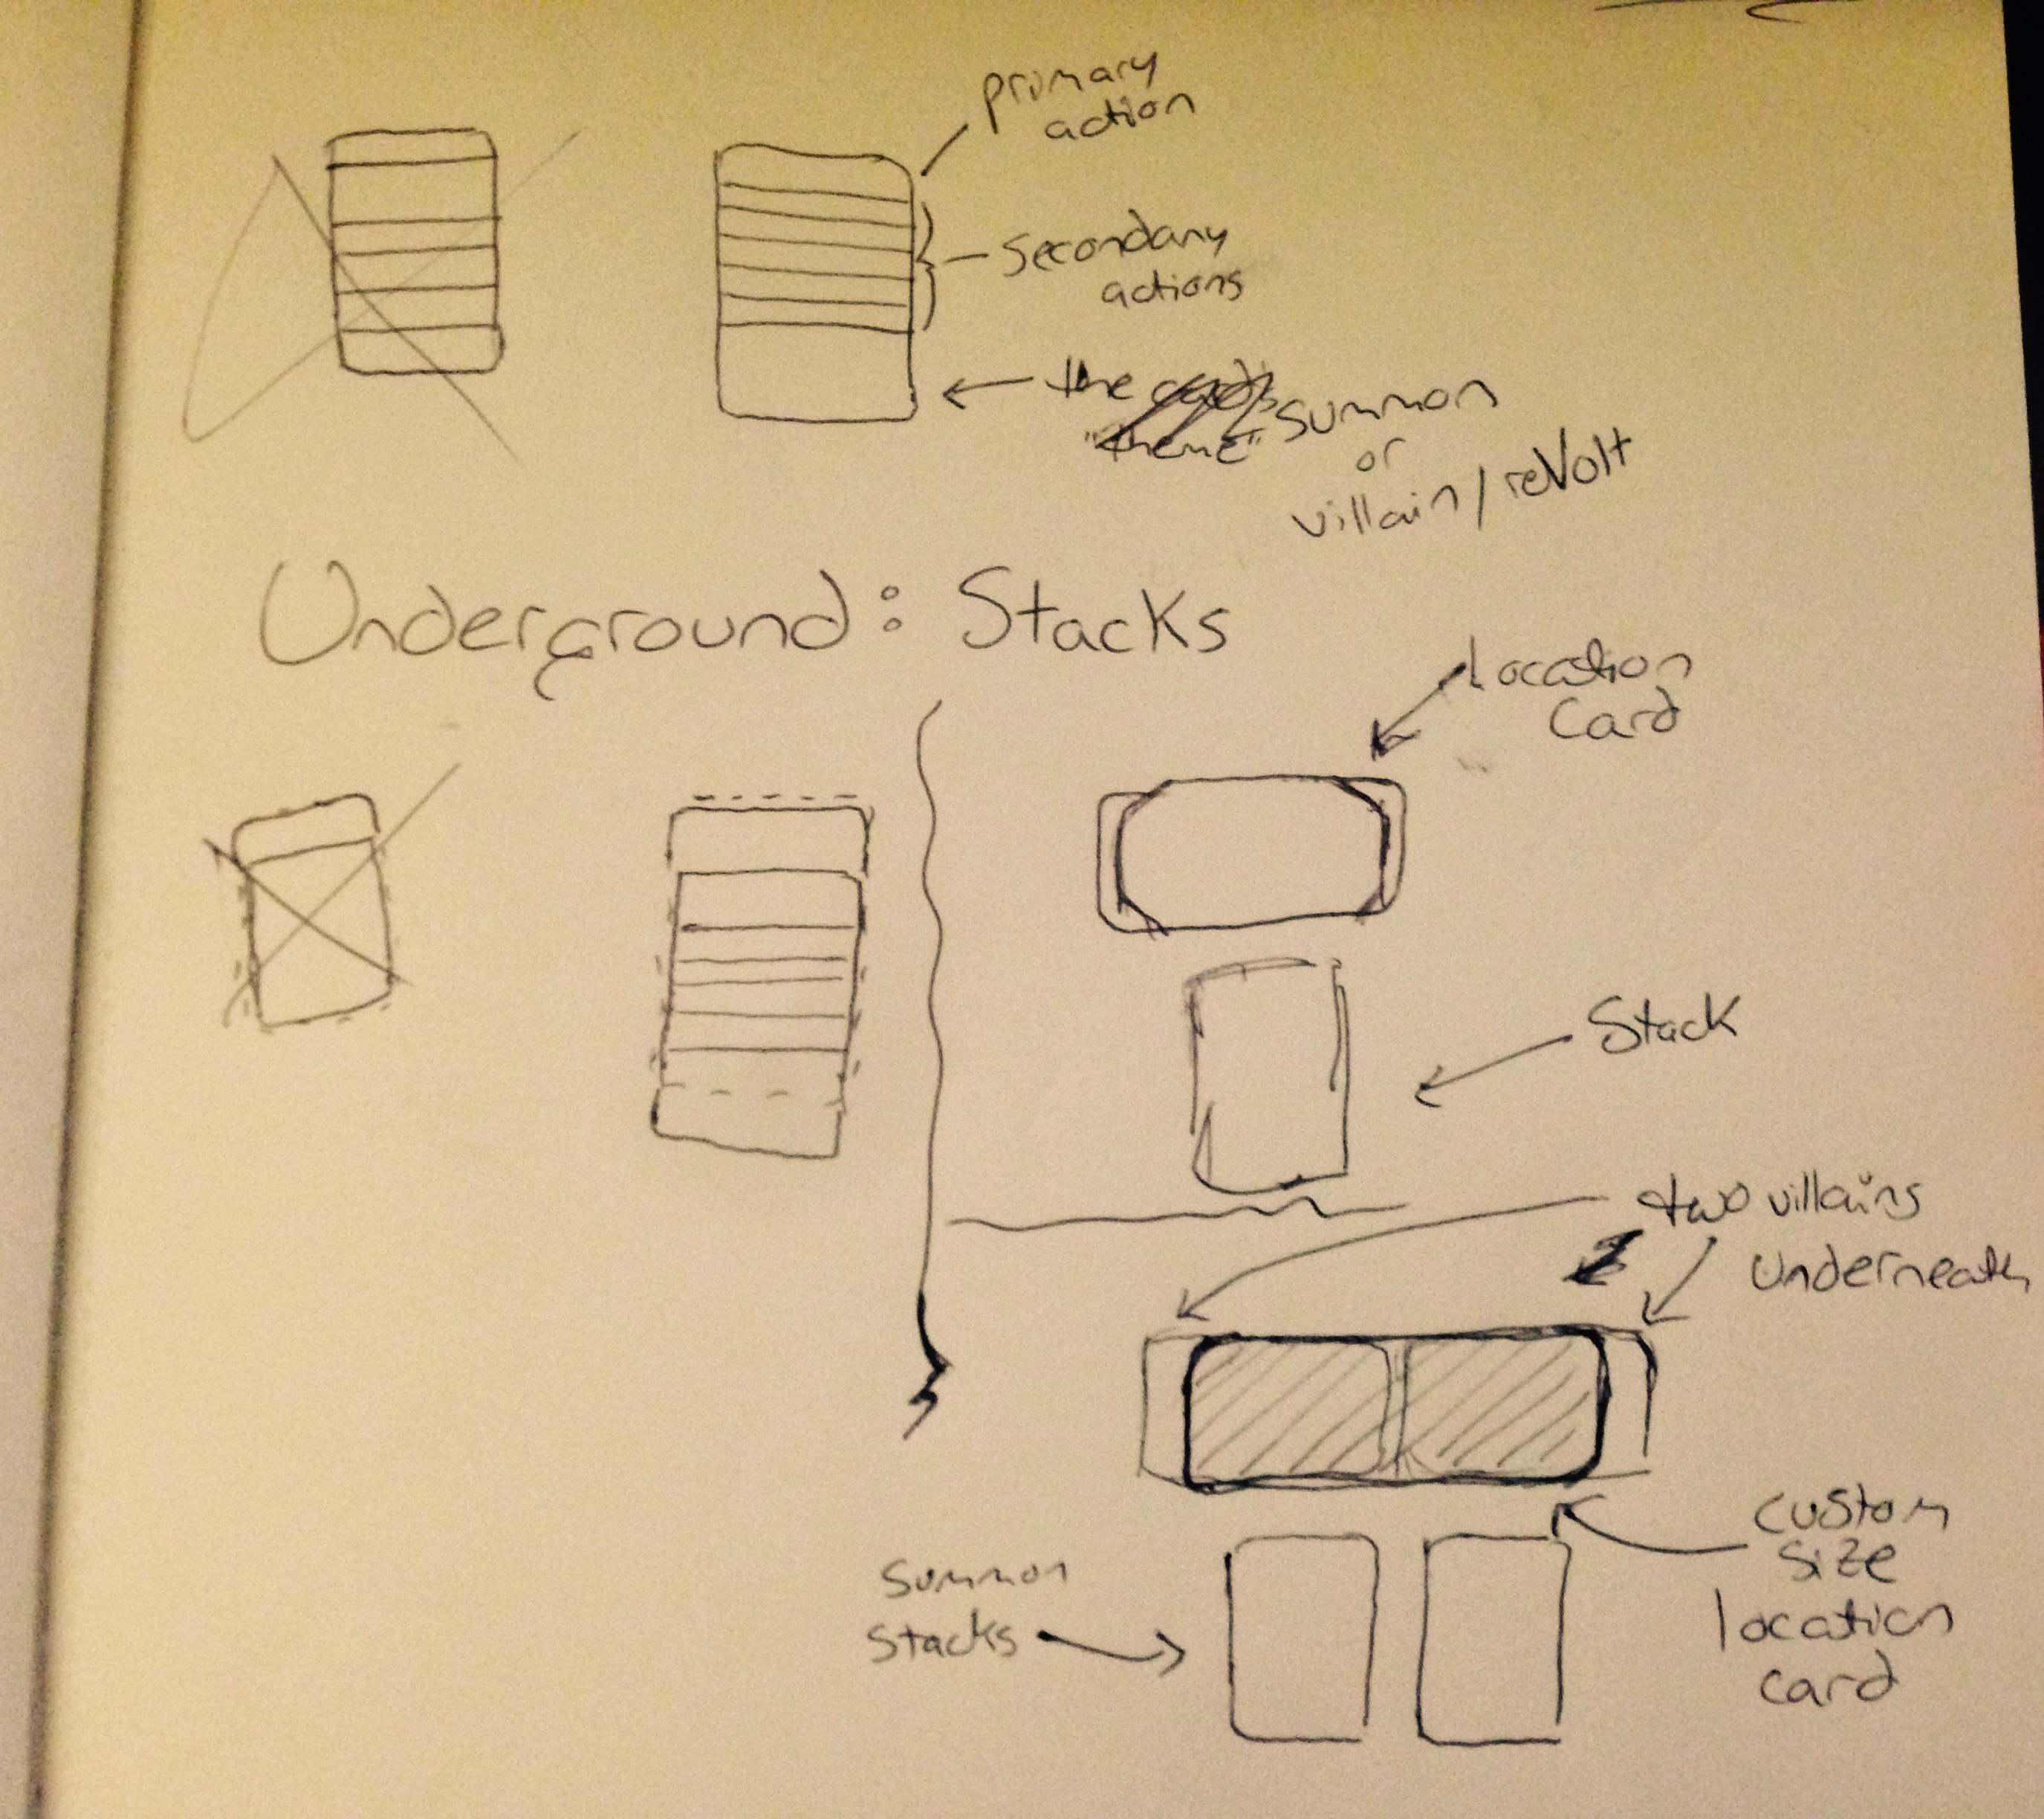 primary
action
Secondary
actions
the cards
"theme"
summon
or
villain/reVolt
Underground: Stacks
Location
Card
Stack
two villains
Underneath
Summon
Stacks
custom
size
location
card